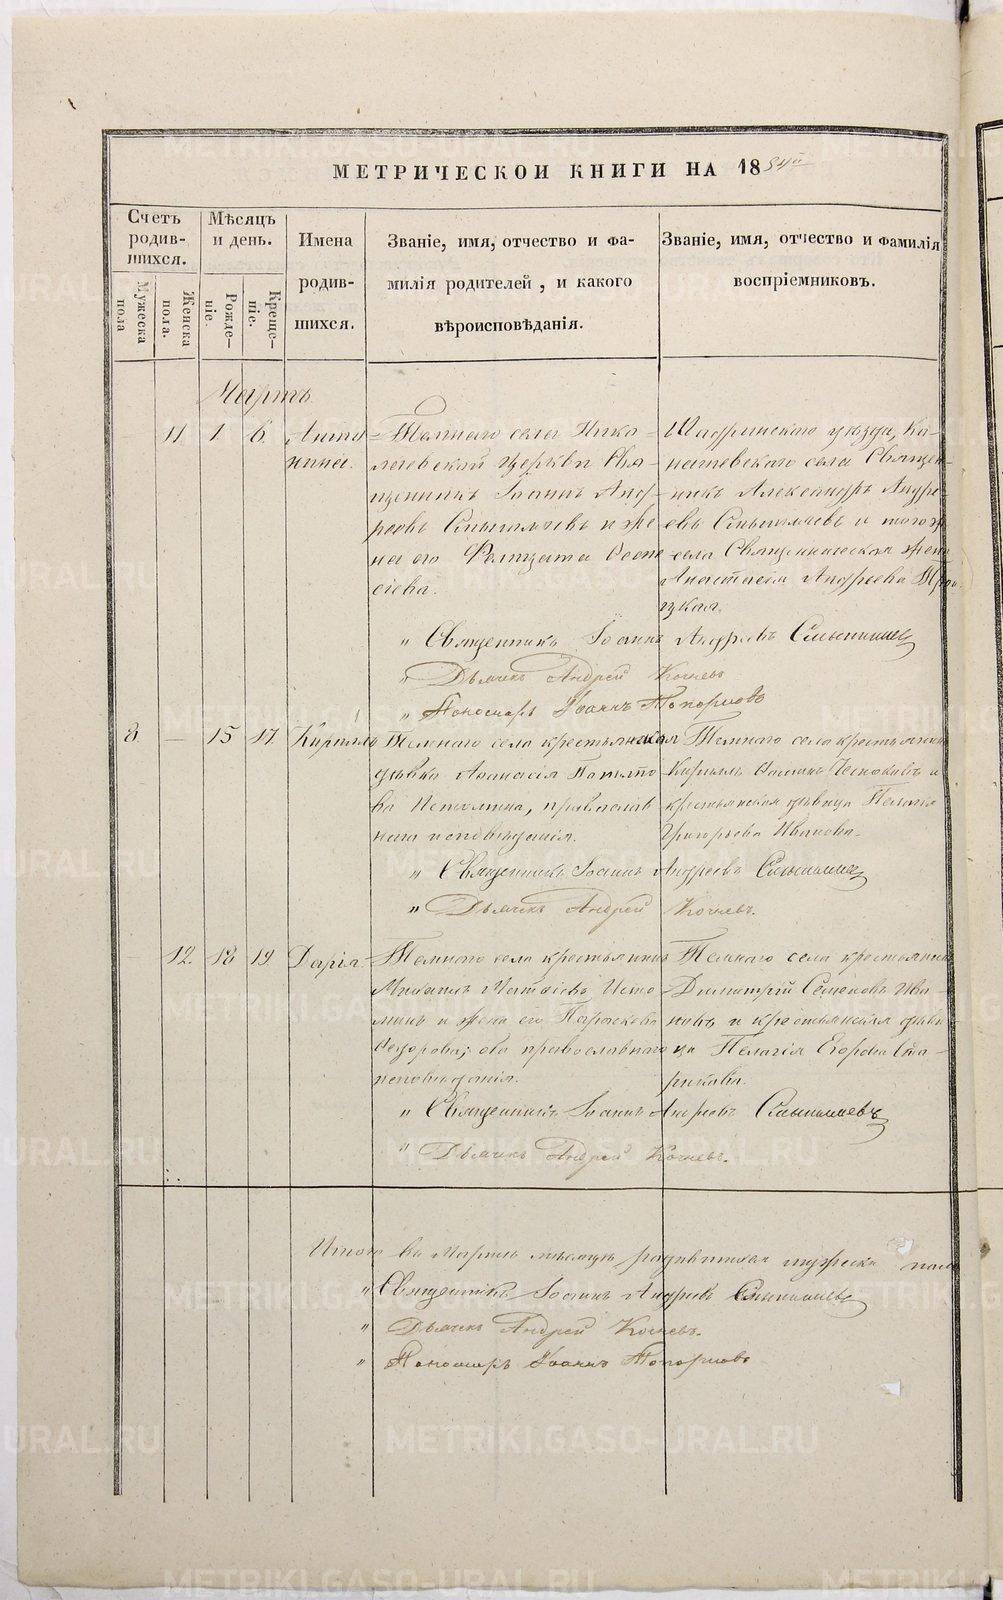 МЕТРИЧЕСКОЙ КНИГИ НА 18
Счетъ родив-шихся.
Мужеска пола
Женска пола.
Мѣсяцъ и день.
Рожде-ніе.
Креще-ніе.
Имена родив-шихся.
Званіе, имя, отчество и фа-
милія родителей, и какого
вѣроисповѣданія.
Званіе, имя, отчество и фамилія
воспріемниковъ.
Мартъ
11. 1. 6. Анто-
нина.
села Нико-
лаевской церкви Свя-
щенникъ Іоаннъ Анд-
реевъ и же
на его
Шадринскаго уѣзда, Ка-
села Священ-
никъ Александръ Андре-
евъ и того же
села Священническая жена
Анастасія Андреева
" Священникъ Іоаннъ Андреевъ
" Дьячекъ Андрей Кочневъ
" Пономарь Іоаннъ Топорковъ
8 — 15 17. Кириллъ
села крестьянская
дѣвка Анасіасія
Истомина, православ
наго исповѣданія.
села крестьянинъ
Кириллъ и
крестьянская дѣвица Пелагія
Григорьева Иванова.
" Священникъ Іоаннъ Андреевъ
" Дьячекъ Андрей Кочневъ.
12. 18 19. Дарія
села крестьянинъ
Михаилъ Матвѣевъ Исто
минъ и жена его Параскева
Ѳедорова; оба православнаго
исповѣданія.
села крестьянинъ
Димитрій Семеновъ Ива
новъ и крестьянская дѣви
ца Пелагія Егорова Ста-
рикова.
" Священникъ Іоаннъ Андреевъ
" Дьячекъ Андрей Кочневъ.
Итого въ Мартѣ мѣсяцѣ родившихся мужеска пола
" Священникъ Іоаннъ Андреевъ
" Дьячекъ Андрей Кочневъ.
" Пономарь Іоаннъ Топорковъ
METRIKI.GASO-URAL.RU